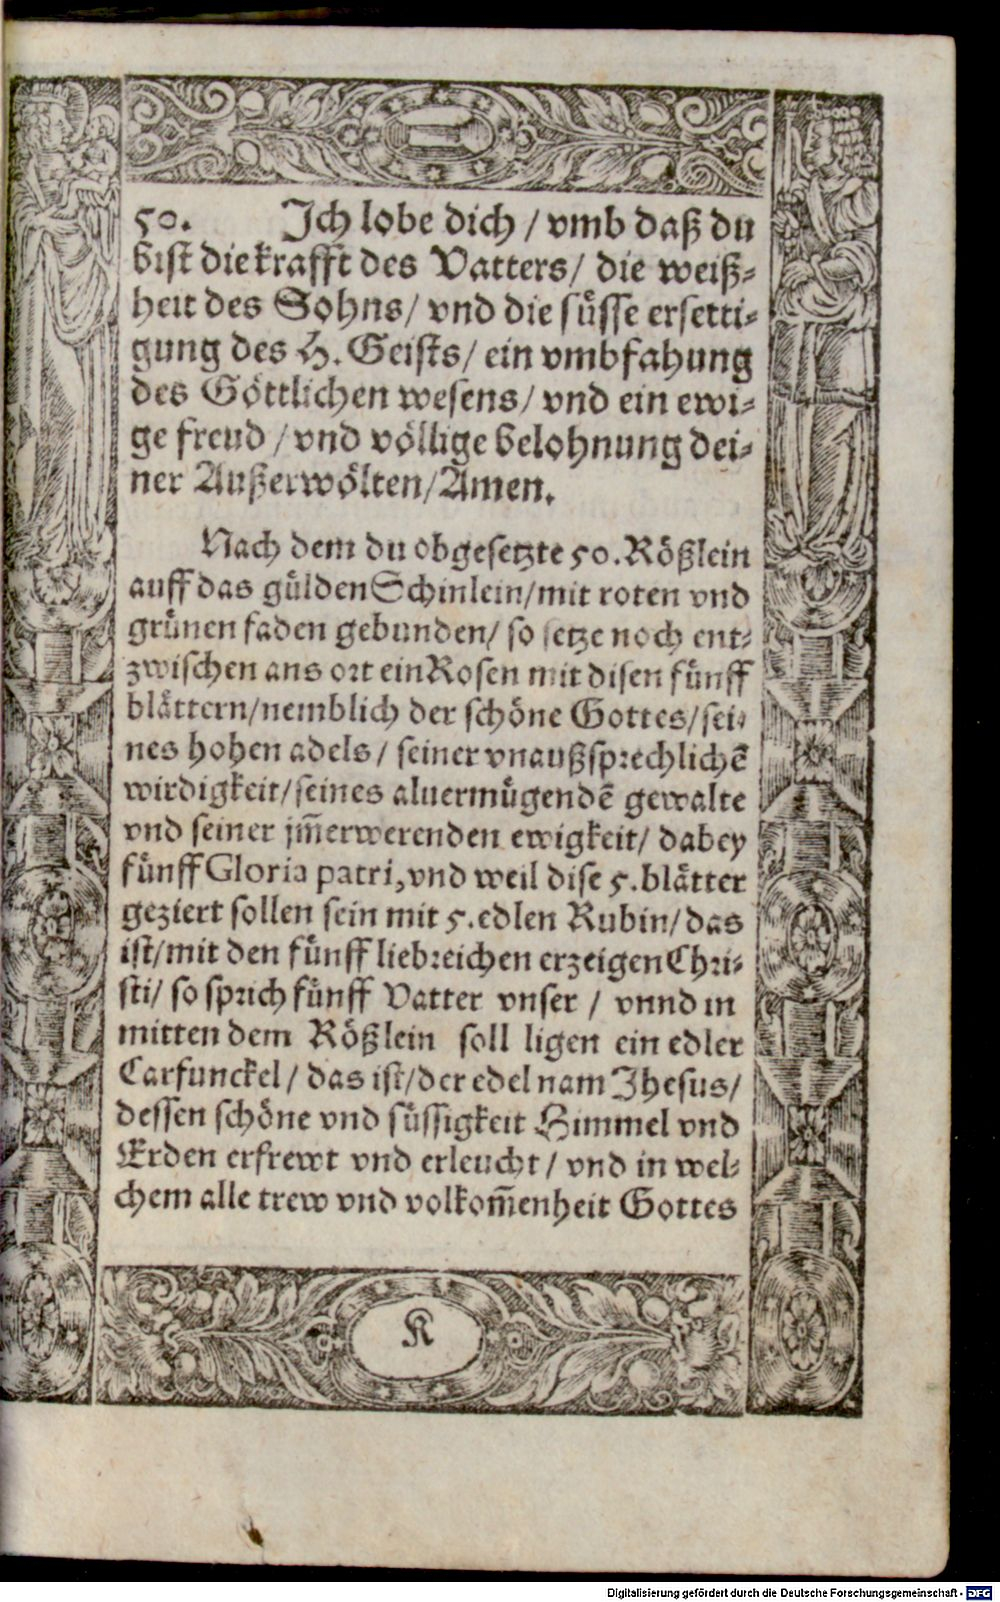 50. Ich lobe dich / vmb daß du
bist die krafft des Vatters / die weiß-
heit des Sohns / vnd die süsse ersetti-
gung des H. Geists / ein vmbfahung
des Göttlichen wesens / vnd ein ewi-
ge freud / vnd völlige belohnung dei-
ner Außerwölten / Amen.
Nach dem du obgesetzte 50. Rößlein
auff das gülden Schinlein / mit roten vnd
grünen faden gebunden / so setze noch ent-
zwischen ans ort ein Rosen mit disen fünff
blättern / nemblich der schöne Gottes / sei-
nes hohen adels / seiner vnaußsprechlichē
wirdigkeit / seines aluermügendē gewalte
vnd seiner jm̄erwerenden ewigkeit / dabey
fünff Gloria patri, vnd weil dise 5. blätter
geziert sollen sein mit 5. edlen Rubin / das
ist / mit den fünff liebreichen erzeigen Chri-
sti / so sprich fünff Vatter vnser / vnnd in
mitten dem Rößlein soll ligen ein edler
Carfunckel / das ist / der edel nam Jhesus /
dessen schöne vnd süssigkeit Himmel vnd
Erden erfrewt vnd erleucht / vnd in wel-
chem alle trew vnd volkom̄enheit Gottes
K
Digitalisierung gefördert durch die Deutsche Forschungsgemeinschaft - DFG